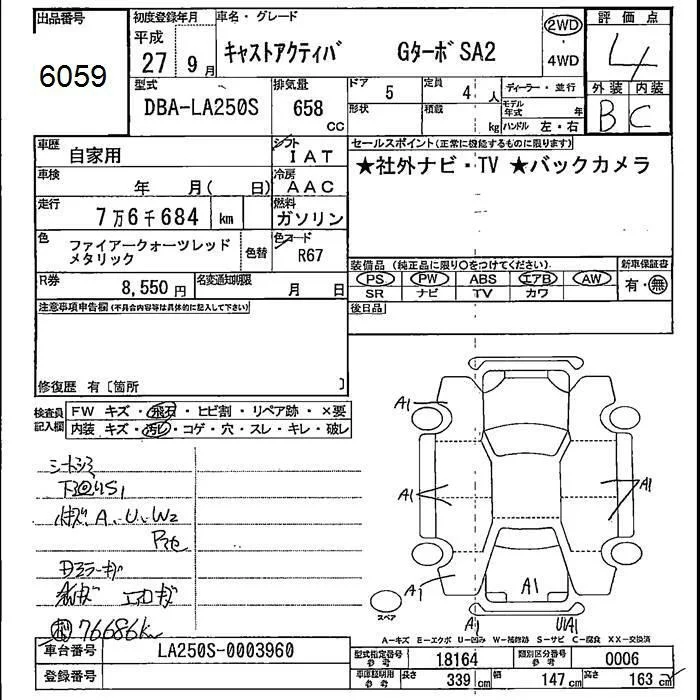 出品番号
6059
初度登録年月
平成
27 9月
車名・グレード
キャストアクティバ GターボSA2
2WD
4WD
評価点
4
外装 内装
B C
型式
DBA-LA250S
排気量
658
cc
ドア 5
定員 4 人
形状
積載 kg
ディーラー・並行
モデル年式 年
ハンドル 左・右
車歴
自家用
シフト
IAT
車検
年 月( 日)
冷房
AAC
走行
7万6千684 km
燃料
ガソリン
色
ファイアークォーツレッド
メタリック
色替
色コード
R67
R券
8,550円
名変通知期限
月 日
セールスポイント(正常に機能するものに限ります)
★社外ナビ・TV ★バックカメラ
装備品 (純正品に限り○をつけてください)
PS PW ABS エアB AW
SR ナビ TV カワ
新車保証書
有・無
後日品
注意事項申告欄(不具合内容等は具体的に記入して下さい)
修復歴 有〔箇所 〕
検査員
記入欄
FW キズ・飛石・ヒビ割・リペア跡・×要
内装 キズ・汚れ・コゲ・穴・スレ・キレ・破レ
A、U、W2
76686km
A1
A1
A1
A1
A1
A1
U1A1
スペア
A-キズ E-エクボ U-凹み W-補修跡 S-サビ C-腐食 XX-交換済
車台番号
LA250S-0003960
登録番号
型式指定番号
参考
18164
類別区分番号
参考
0006
車庫証明用
参考
長さ 339 cm
幅 147 cm
高さ 163 cm